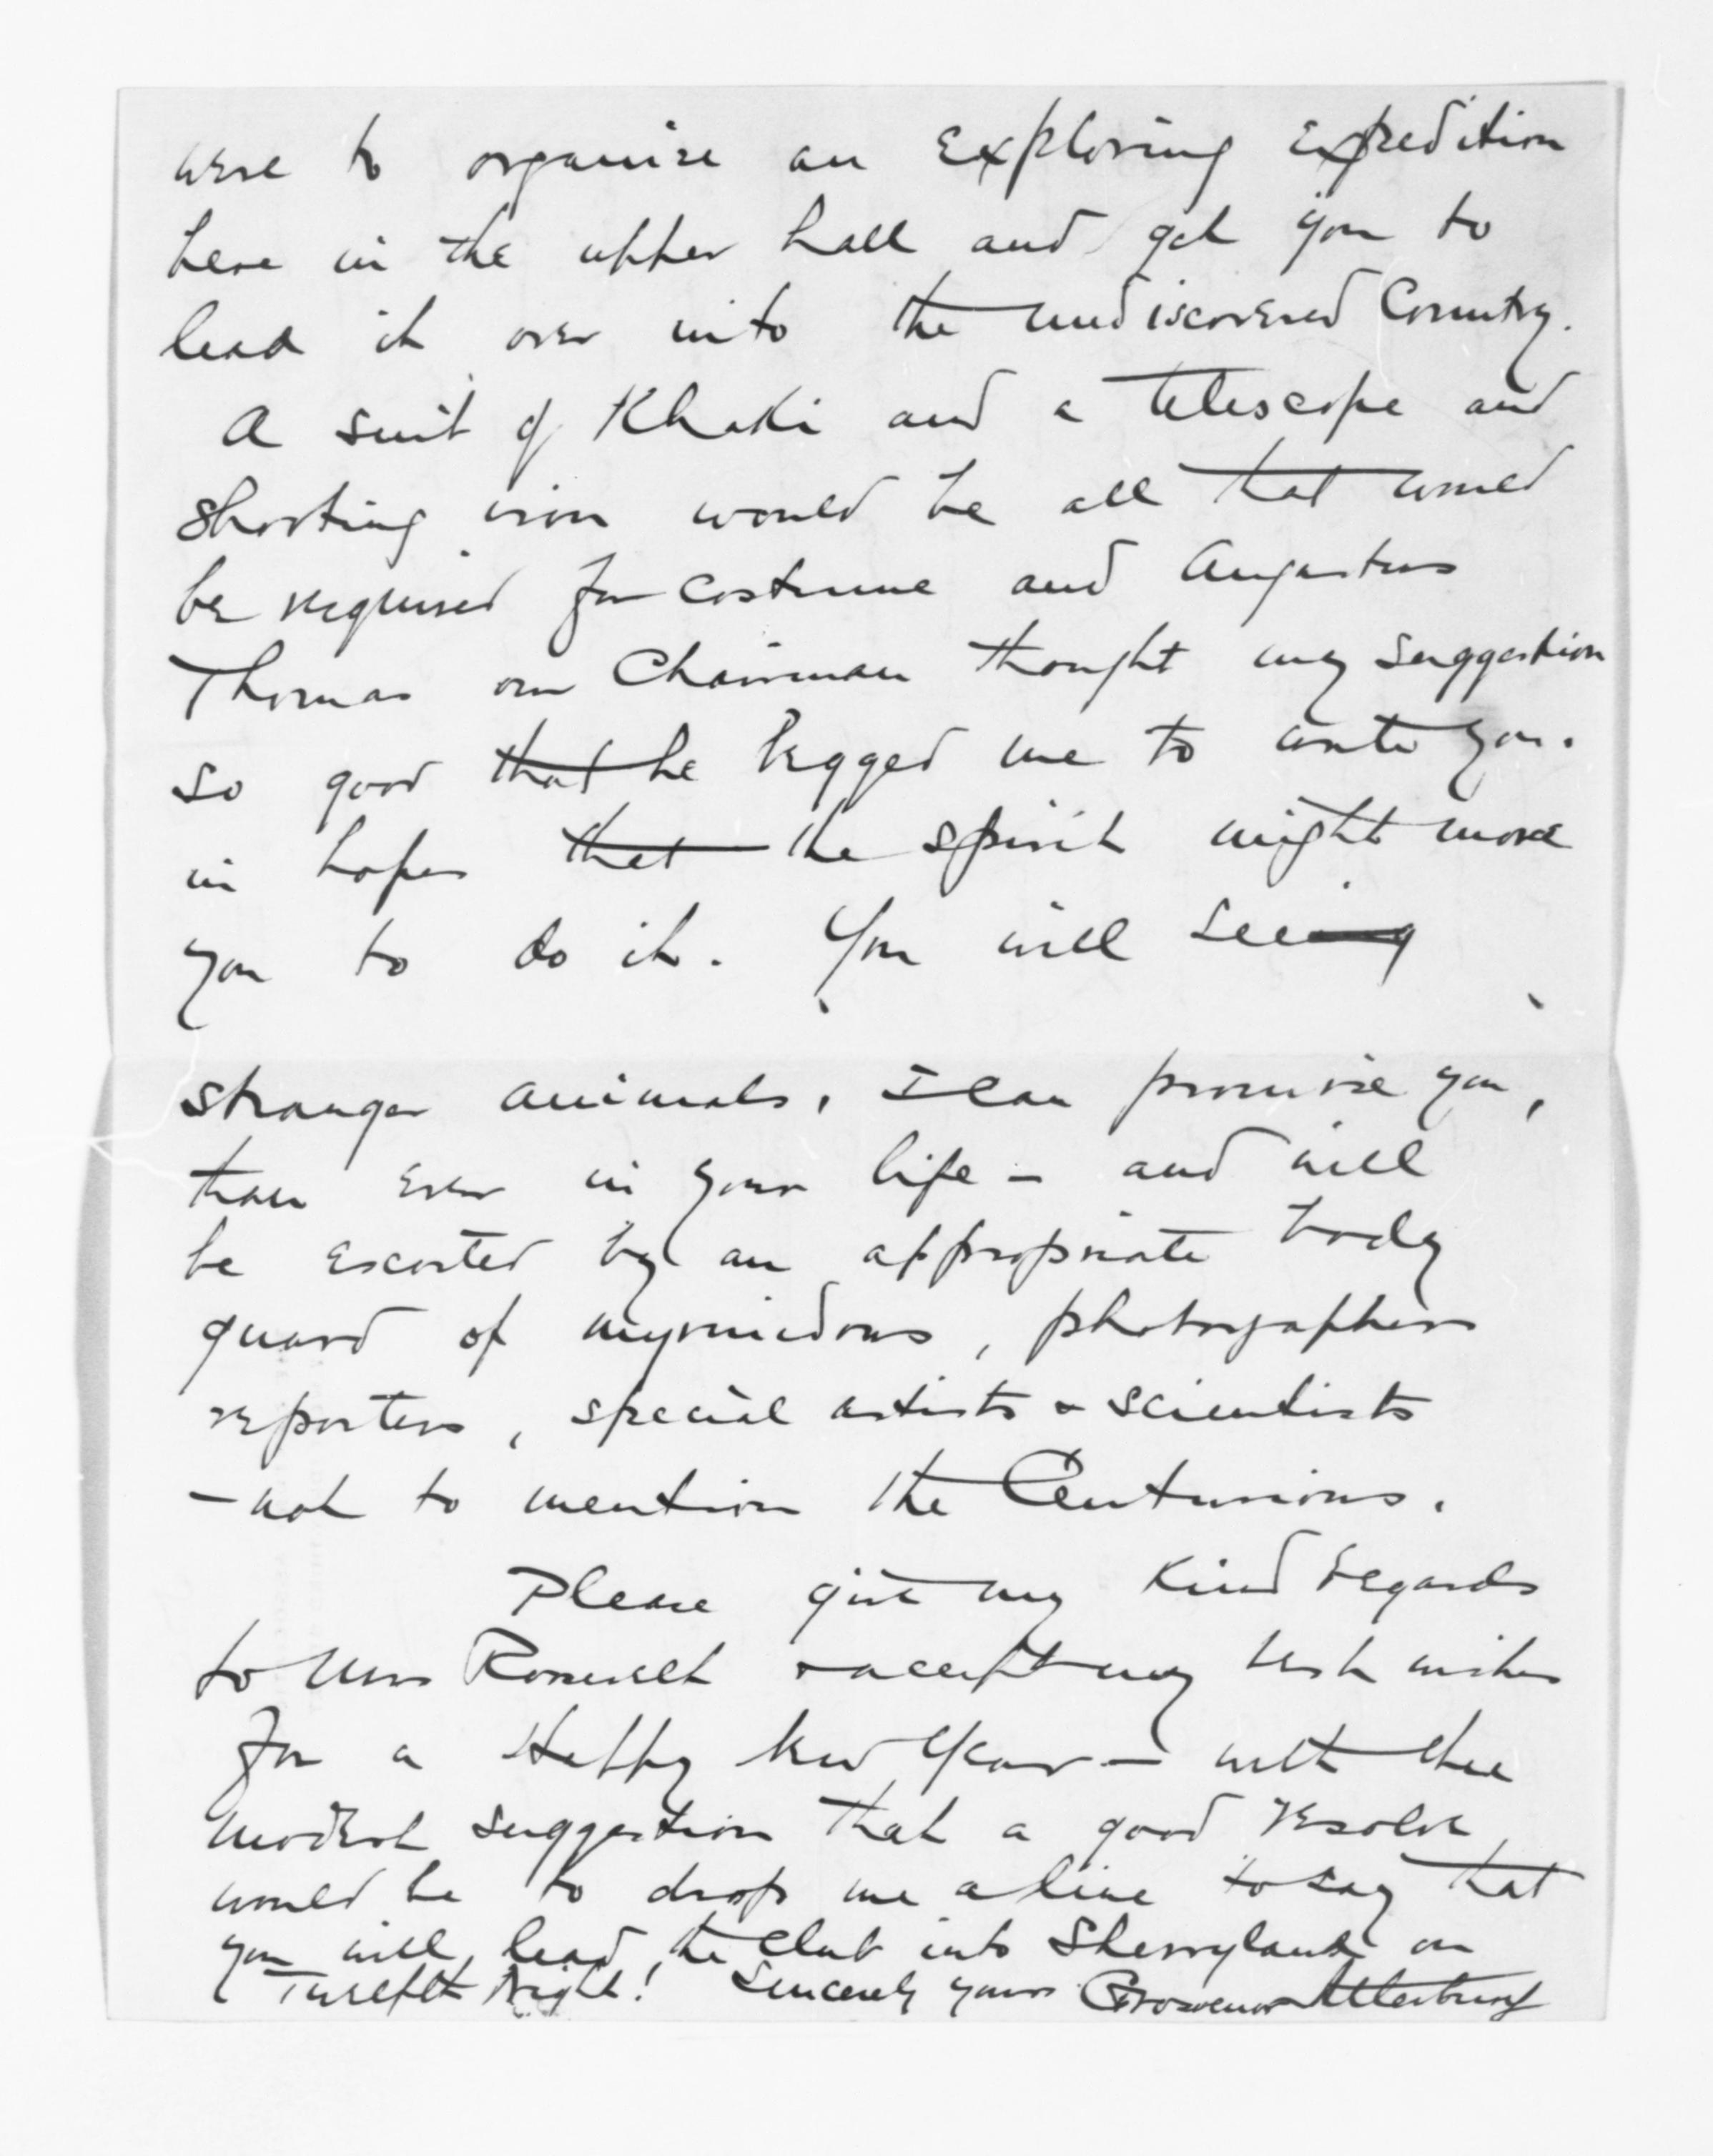 were to organise an Exploring Expedition
here in the upper hall and get you to
lead it over into the undiscovered Country.
A suit of Khaki and a telescope and
shooting iron would be all that would
be required for costume and Augustus
Thomas our Chairman thought my suggestion
so good that he begged me to write you.
in hopes that the spirit might move
you to do it. You will see
stranger animals, I can promise you,
than ever in your life – and will
be escorted by an appropriate body
guard of myrmidons, photographers
reporters, special artists & scientists
– not to mention the Centurions.
Please give my kind regards
to Mrs Roosevelt & accept my best wishes
for a Happy New Year – with the
modest suggestion that a good resolve
would be to drop me a line to say that
you will lead the Club into Sherryland on
Twelfth Night! Sincerely yours Grosvenor Atterbury